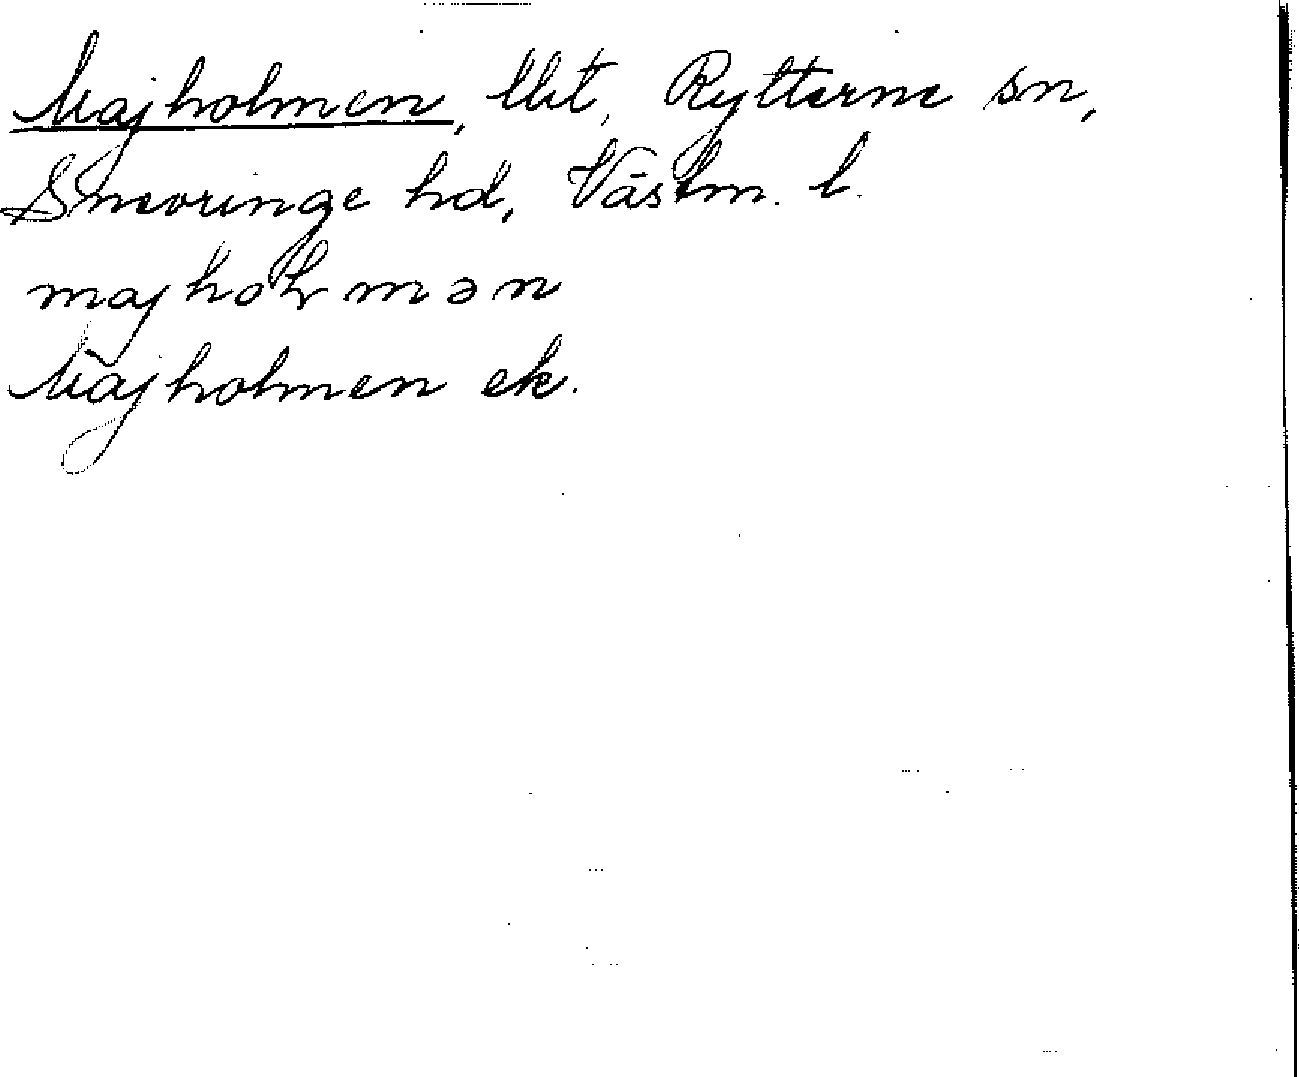 Majholmen, lht, Rytterne sn,
Snevringe hd, Västm. l.
majholmən
Majholmen ek.